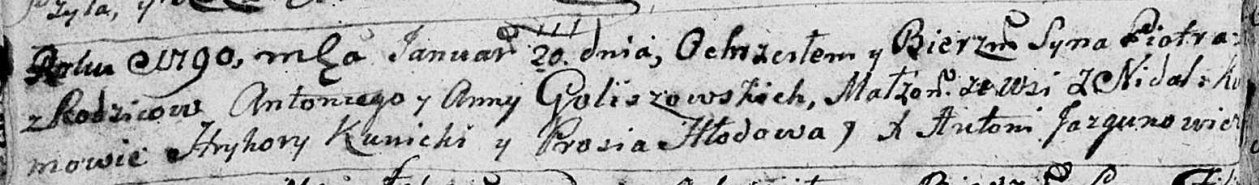 Roku 1790, mca Januar 20. dnia, Ochrzciłem y Bierzm Syna Piotra
z Rodzicow Antoniego y Anny Goliszowskich, Małżon. ze wsi z Nidal
mowie Hryhory Kunicki y Prosia Hłodowa, X Antoni Jazgunowicz